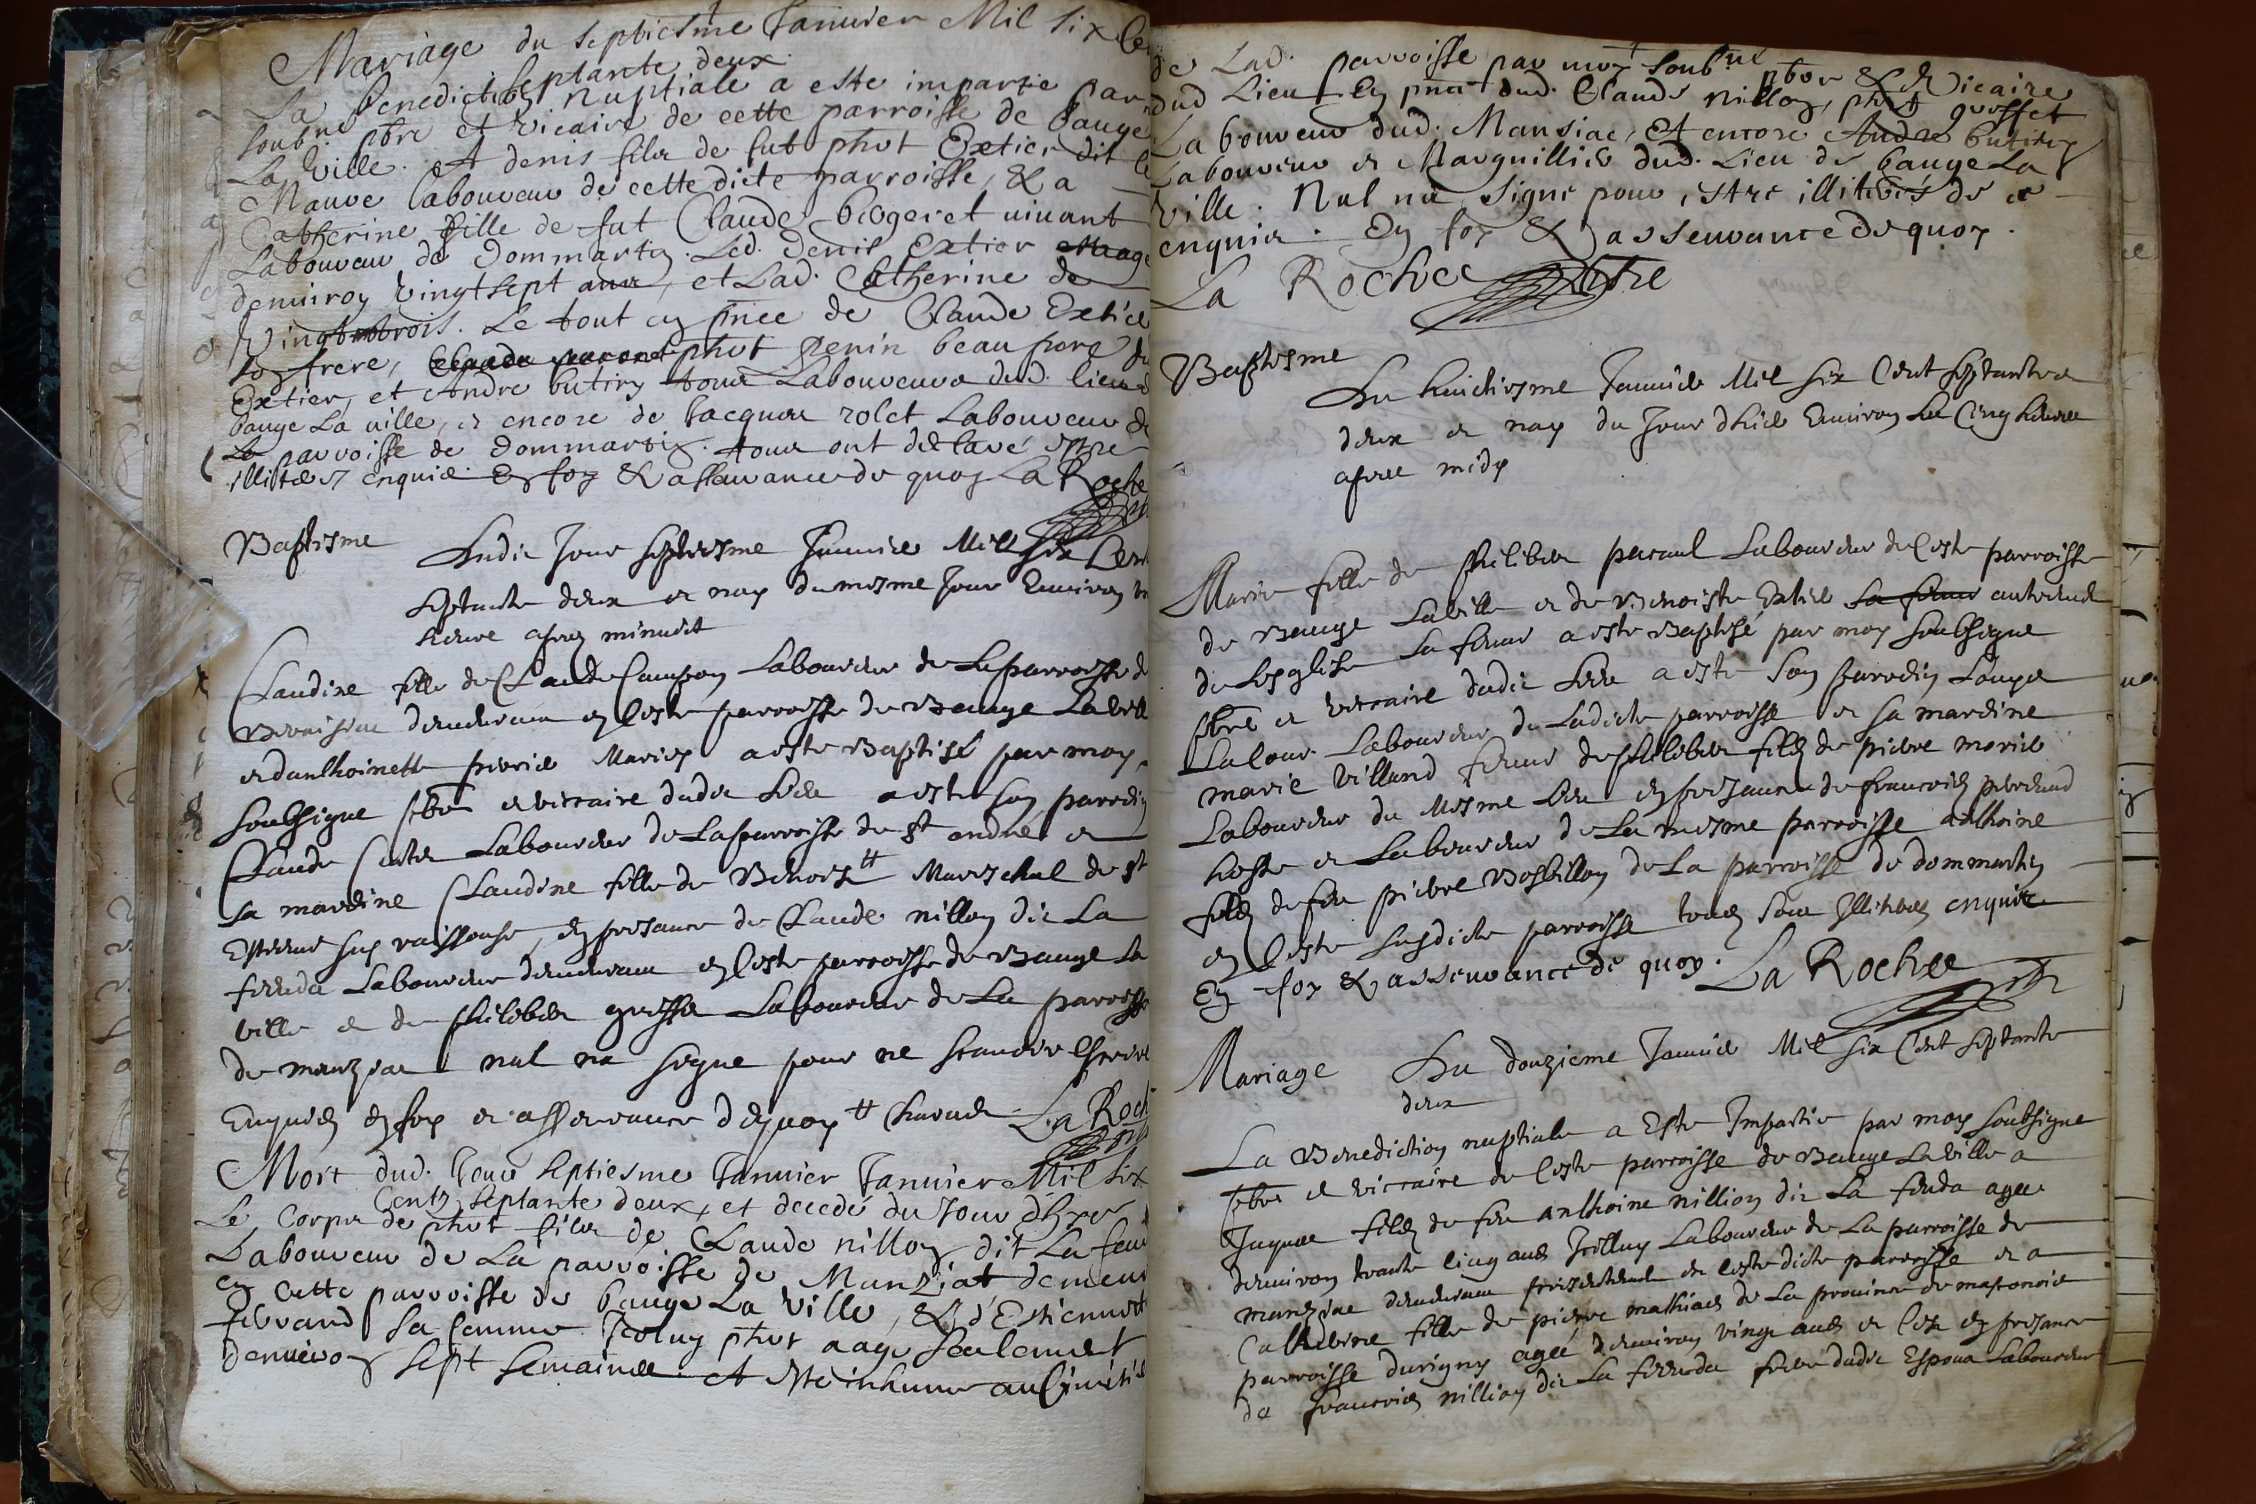 Mariage du septiesme Januier Mil six Ce
septante deux
La benediction Nuptiale a este impartie par
soubne pbre et vicaire de cette parroisse de bauge
La Ville. A denis filx de fut phot Extier dit le
Mauve labouveur de cette dicte parroisse, & a
Catherine fille de fut Claude bergeret uiuant
Laboureur de Dommartin. Led. denis Extier
denuiron Vingt sept ans, et Lad. Catherine de
Vingt trois. Le tout en pnce de Claude Extier
son frere, phot Penin beau frere du
Extier, et Andre butin tous Laboureurs dud. lieu de
bauge La uille, & encore de Jacques rolet Laboureur de
La parroisse de Dommartin. tous ont déclaré estre
illiteres enquis. En foy & asseurance de quoy La Roche
Baptisme
Ludit Jour septiesme Januier Mil six Cent
septante deux et nay du mesme Jour Enuiron
heure apres minuict
Claudine fille de Claude Campon Laboureur de La parroisse de
demeurant en ceste parroisse de Bauge La ville
et danthoinette pierrie Mariez a este Baptisé par moy
soubsigne pbre et vicaire dudit Lieu a este son parrein
Claude Laboureur de La parroisse de St andré et
sa mareine Claudine fille de Benoist Mareschal de St
Estienne sus raissouse, en presance de Claude nillon dit La
feuda Laboureur demeurant en ceste parroisse de Bauge La
ville et de philiber gresset Laboureur de La parroisse
de manziat nul na signe pour ne scauoir escrire
Enquis en foy et asseurance dequoy La Roche
Mort dud. Jour septiesme Januier Januier Mil six
Centz septante deux, et decedé du Jour d'hyer
Le Corps de phot filx de Claude nillon dit La feuda
Laboureur de La parroisse de Manziat demeur
en cette parroisse de bauge La Ville, & d'Estiennette
feurand sa femme. Iceluy phot aage seulement
denuiron sept semaines. A este inhumé au Cimetié
de Lad. parroisse par moy soubne pbre & Vicaire
dud Lieu. En pnce dud. Claude nillon, phot gresset
La boureur dud. Mansiac, Et encore Andre butin
Laboureur & Marguillier dud. Lieu de bauge La
Ville. Nul na signe pour estre illiterés de ce
enquis. En foy & asseurance de quoy.
La Roche pbre
Baptesme
Du huictiesme Januier Mil six Cent septante
deux et nay du Jour dhier Enuiron Les Cinq heures
apres midy
Marie fille de philiber pacaul Laboureur de Ceste parroisse
de Bauge La ville et de Benoiste Extier sa femme
de Lesglise sa femme a este Baptisé par moy soubsigne
pbre et viccaire dudit Lieu a este son parrein Louys
Lalour Laboureur de Ladicte parroisse et sa mareine
marie Villand femme de philiber filz de pierre morier
Laboureur du Mesme Lieu en presance de francois
hoste et Laboureur de La mesme parroisse anthoine
filz de feu pierre Bosbillon de La parroisse de dommartin
en Ceste susdicte parroisse tous sont Illiteres enquis
En foy & asseurance de quoy. La Roche pbre
Mariage Du douzieme Januier Mil six Cent septante
deux
La Benediction nuptiale a Este Impartie par moy soubsigne
pbre et viccaire de Ceste parroisse de Bauge La ville a
Jaques filz de feu anthoine nillion dit La feuda agee
denuiron trante cinq ans Icelluy Laboureur de La parroisse de
manziat demeurant presentement en ceste dicte parroisse et a
Catherine fille de pierre mathias de La prouince de masconois
parroisse durigny agee denuiron vingt ans et Ce en presance
de francois nillion dit La feuda frere dudit Espoux Laboureur